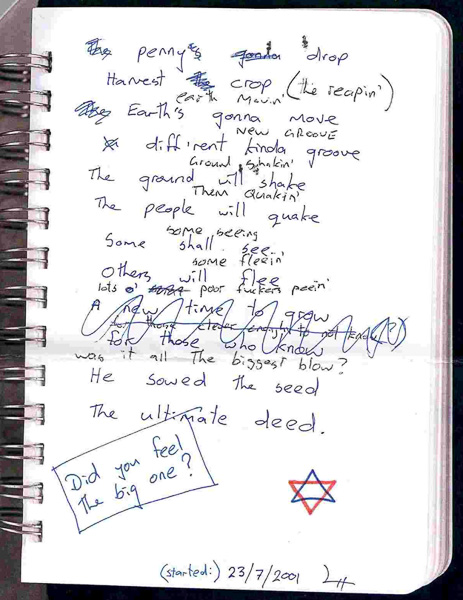 The penny's gonna drop
Harvest the crop (the reapin')
earth Movin'
Earth's gonna move
NEW GROOVE
diff'rent kinda groove
Ground Shakin'
The ground will shake
Them Quakin'
The people will quake
some seeing
Some shall see
some fleein'
Others will flee
lots o' poor fuckers peein'
A new time to grow
for those clever enough to not know (?)
for those who know
was it all The biggest blow?
He sowed the seed
The ultimate deed.
Did you feel
The big one?
(started:) 23/7/2001